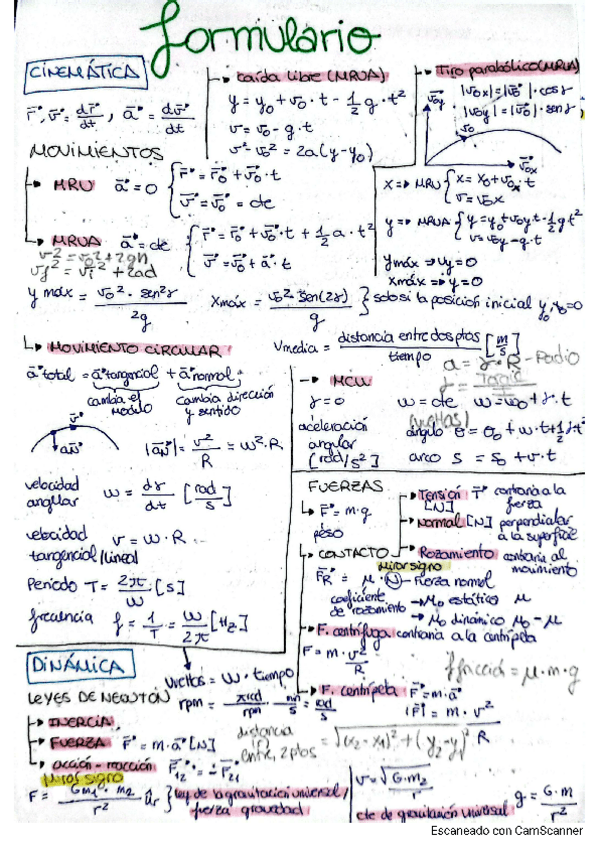 formulario
CINEMÁTICA
r⃗, v⃗ = dr⃗/dt, a⃗ = dv⃗/dt
MOVIMIENTOS
MRU a⃗ = 0 { r⃗ = r⃗₀ + v⃗₀·t
v⃗ = v⃗₀ = cte
MRUA a⃗ = cte { r⃗ = r⃗₀ + v⃗₀·t + 1/2 a·t²
v⃗ = v⃗₀ + a⃗·t
v² = v₀² + 2gh
vf² = vi² + 2ad
caída libre (MRUA)
y = y₀ + v₀·t - 1/2 g·t²
v = v₀ - g·t
v² - v₀² = 2a(y - y₀)
Tiro parabólico (MRUA)
|v₀x| = |v₀|·cos γ
|v₀y| = |v₀|·sen γ
v₀y
v₀
v₀x
x => MRU { x = x₀ + v₀x·t
v = v₀x
y => MRUA { y = y₀ + v₀y·t - 1/2 g t²
v = v₀y - g·t
ymáx => vy = 0
xmáx => y = 0
y máx = v₀²·sen²γ / 2g
xmáx = v₀²·sen(2γ) / g } solo si la posición inicial y₀, x₀ = 0
MOVIMIENTO CIRCULAR
Vmedia = distancia entre dos ptos / tiempo [m/s]
a⃗ total = a⃗ tangencial + a⃗ normal
cambia el módulo
cambia dirección y sentido
v⃗
a⃗N
|a⃗N| = v²/R = w²·R
a = γ·R - Radio
MCU
γ = 0
w = cte w = w₀ + γ·t
(vueltas)
aceleración angular [rad/s²]
ángulo θ = θ₀ + w·t + 1/2 γ t²
arco s = s₀ + v·t
velocidad angular w = dγ/dt [rad/s]
velocidad tangencial/lineal v = w·R
Período T = 2π/w [s]
frecuencia f = 1/T = w/2π [Hz]
vueltas = w·tiempo
rpm = πrad/rpm · min/s = rad/s
FUERZAS
F⃗ = m·g
peso
CONTACTO
Tensión T⃗ contraria a la fuerza
[N]
Normal [N] perpendicular a la superficie
Rozamiento contraria al movimiento
Mirar signo
F⃗R = μ·N - Fuerza normal
coeficiente de rozamiento
μ₀ estático μ
μ₀ dinámico μ₀ - μ
F. centrífuga contraria a la centrípeta
F = m·v²/R
F fricción = μ·m·g
F. centrípeta F⃗ = m·a⃗
|F⃗| = m·v²
R
distancia entre 2 ptos = √(x₂ - x₁)² + (y₂ - y₁)²
DINÁMICA
LEYES DE NEWTON
INERCIA
FUERZA F⃗ = m·a⃗ [N]
acción - reacción F⃗₁₂ = - F⃗₂₁
Mirar signo
F = G m₁·m₂ / r² u⃗r } ley de la gravitación universal/
fuerza gravedad
v = √G·m₂/r
cte de gravitación universal
g = G·m/r²
Escaneado con CamScanner